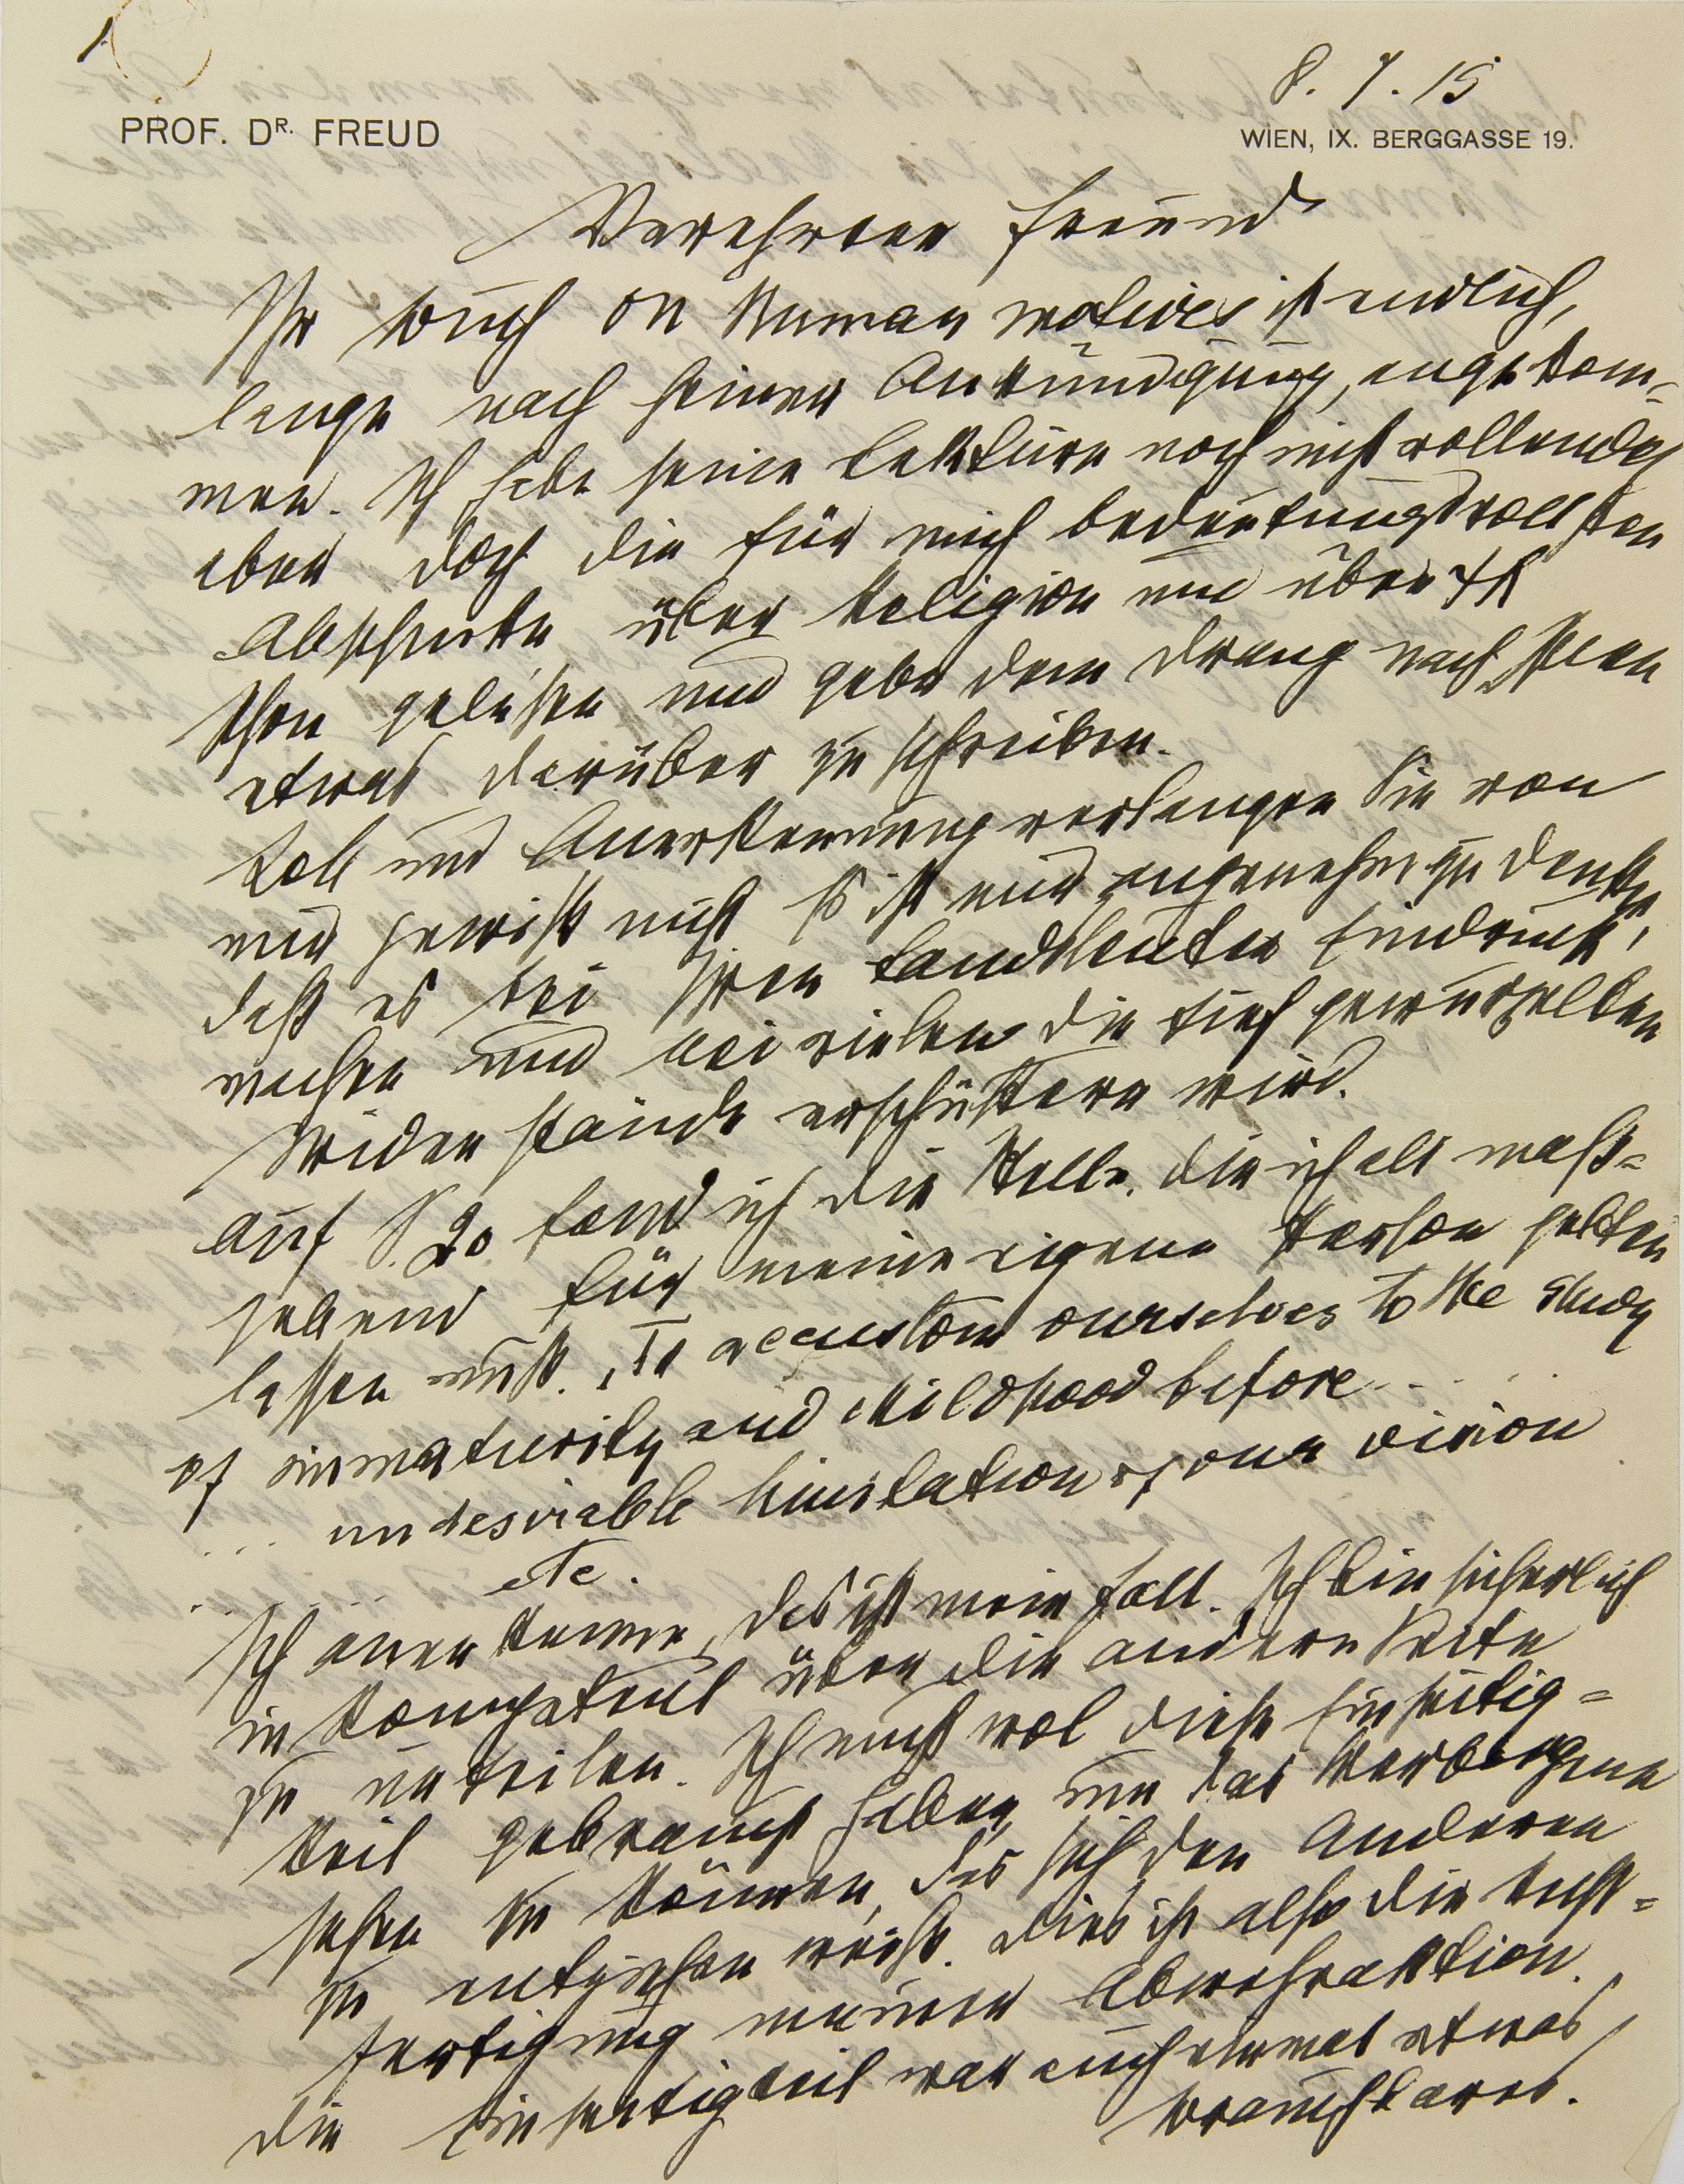 1
8. 7. 15
PROF. DR. FREUD
WIEN, IX. BERGGASSE 19.
Verehrter Freund
Ihr Buch on Human motives ist endlich,
lange nach seiner Ankündigung, angekom-
men. Ich habe seine Lektüre noch nicht vollendet
aber doch die für mich bedeutungsvollsten
Abschnitte über Religion und über ΨA
schon gelesen und gebe dem Drang nach Ihnen
etwas darüber zu schreiben.
Lob und Anerkennung verlangen Sie von
mir gewiß nicht. Es ist mir angenehm zu denken,
daß es bei Ihren Landsleuten Eindruck
machen und bei vielen die tief gewurzelten
Widerstände erschüttern wird.
Auf S. 20 fand ich die Stelle, die ich als maß-
gebend für meine eigene Person gelten
lassen muß. „To accustom ourselves to the study
of immaturity and childhood before . . . .
. . . undesirable limitation of our vision
. . . . . . etc.
Ich anerkenne, das ist mein Fall. Ich bin sicherlich
inkompetent über die andere Seite
zu urteilen. Ich muß wol diese Einseitig-
keit gebraucht haben, um das Verborgene
sehen zu können, das sich den Anderen
zu entziehen weiß. Dies ist also die Recht-
fertigung meiner Abwehrreaktion.
Die Einseitigkeit war auch einmal etwas
Brauchbares.